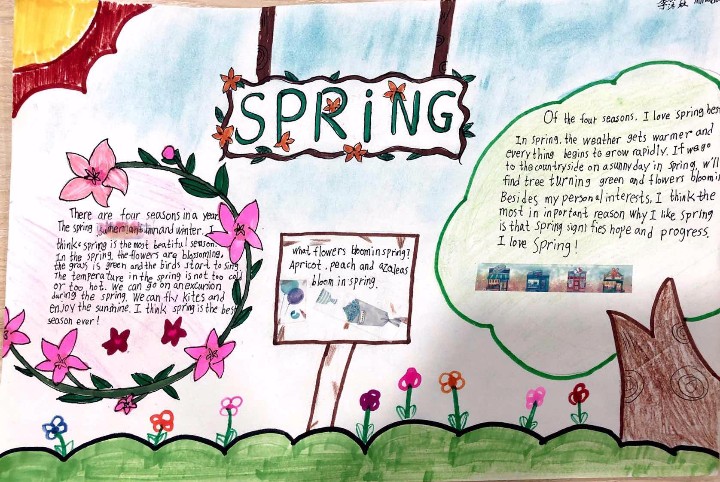 SPRING
There are four seasons in a year.
The spring, and winter. I
think spring is the most beatiful season.
In the spring, the flowers are blossoming,
the grass is green and the birds start to sing.
The temperature in the spring is not too cold
or too hot. We can go on an excursion
during the spring. We can fly kites and
enjoy the sunshine. I think spring is the best
season ever!
what flowers bloom in spring?
Apricot, peach and azaleas
bloom in spring.
Of the four seasons, I love spring bes
In spring, the weather gets warmer and
everything begins to grow rapidly. If we go
to the countryside on a sunny day in spring, we'll
find tree turning green and flowers bloomin
Besides my personal interests, I think the
most in inportant reason why I like spring
is that spring signifies hope and progress.
I love Spring!